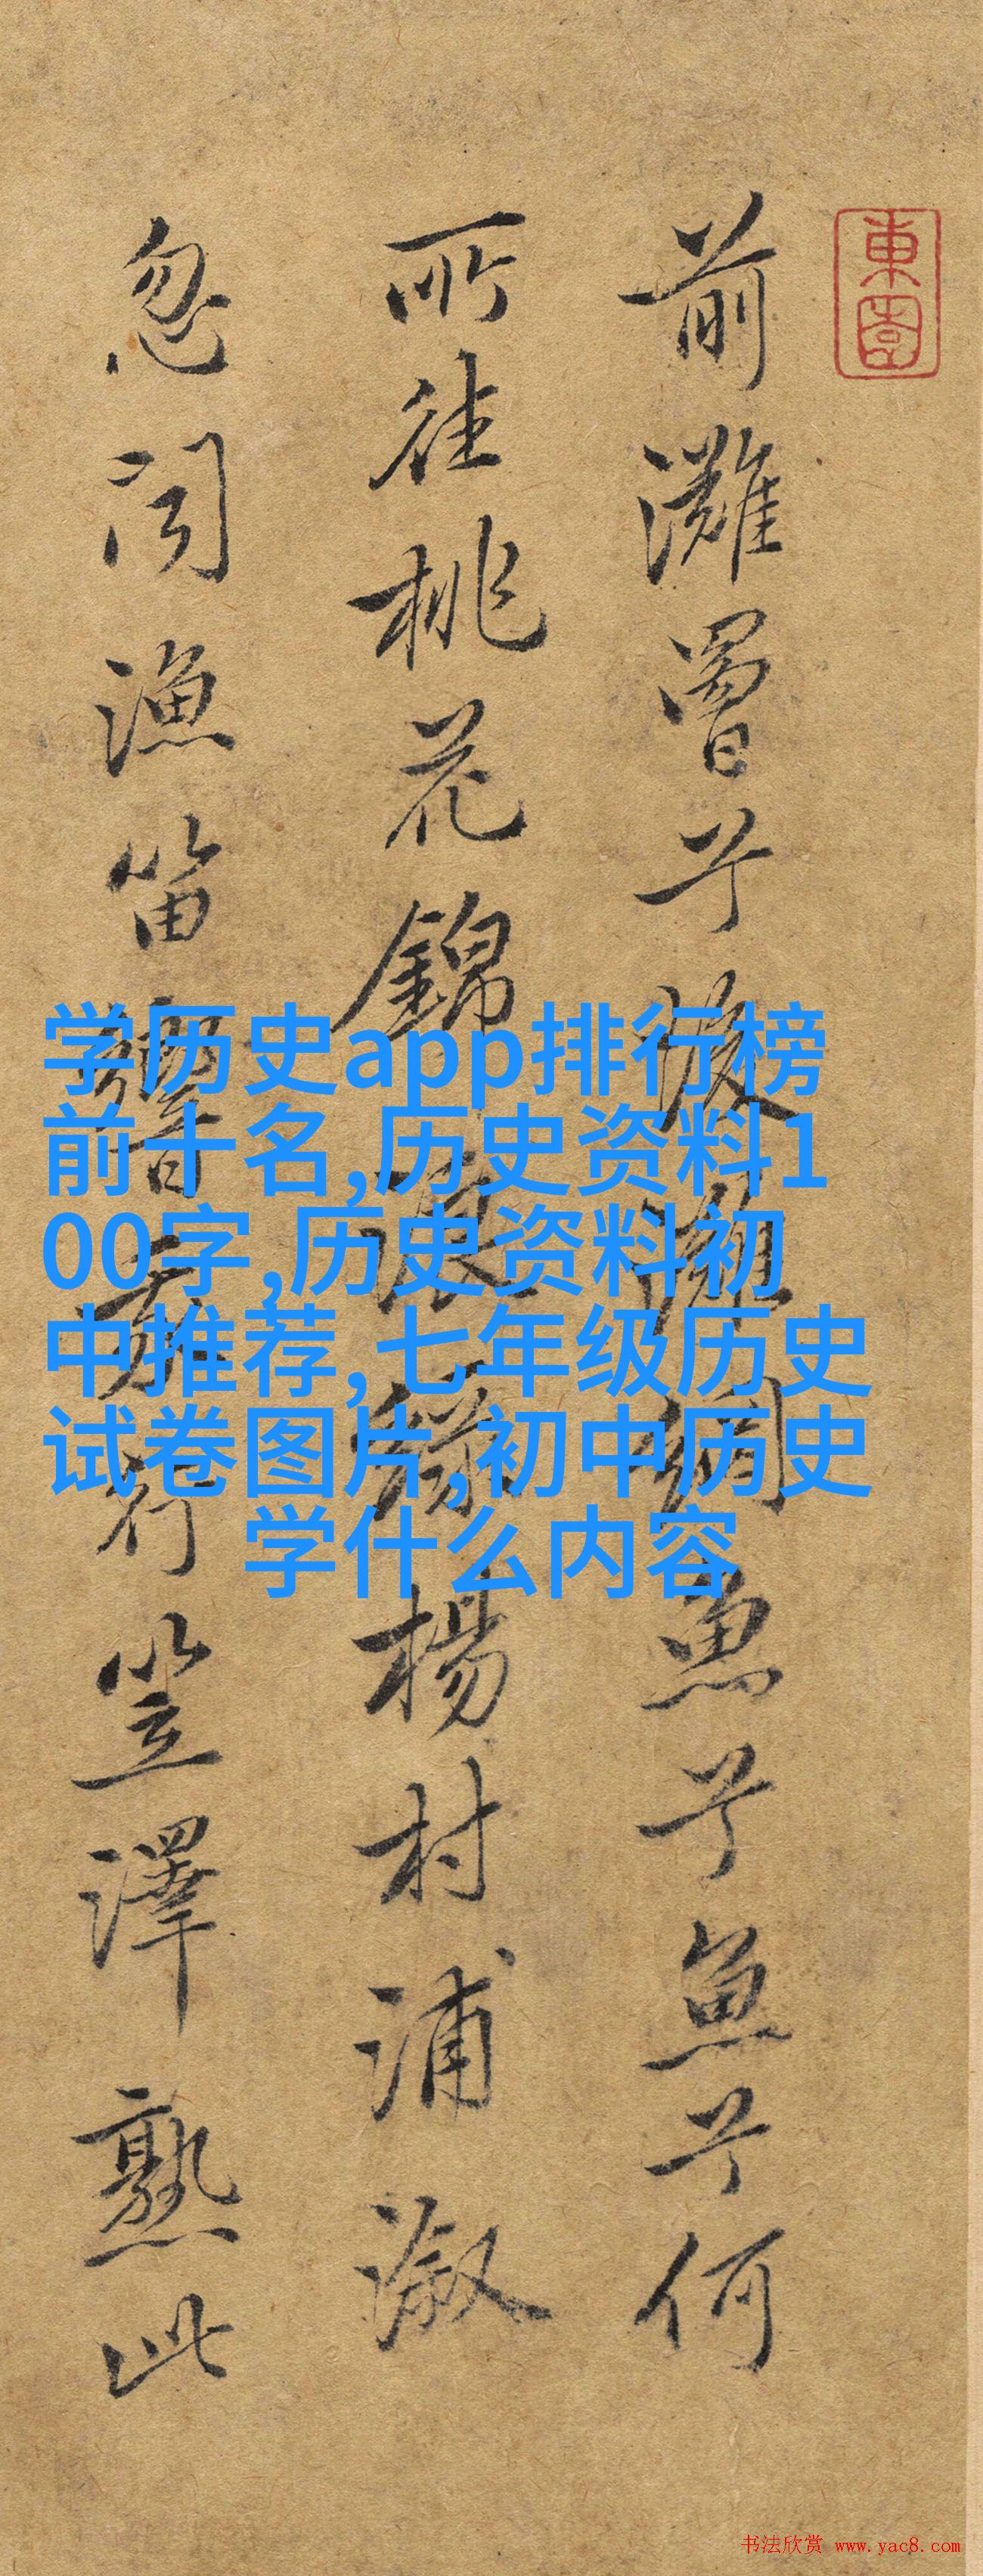 東園
前灘罾兮後灘網魚兮魚兮何
所往桃花錦浪綠楊村浦漵
忽聞漁笛響我行笠澤熟此
学历史app排行榜
前十名,历史资料1
00字,历史资料初
中推荐,七年级历史
试卷图片,初中历史
学什么内容
书法欣赏 www.yac8.com